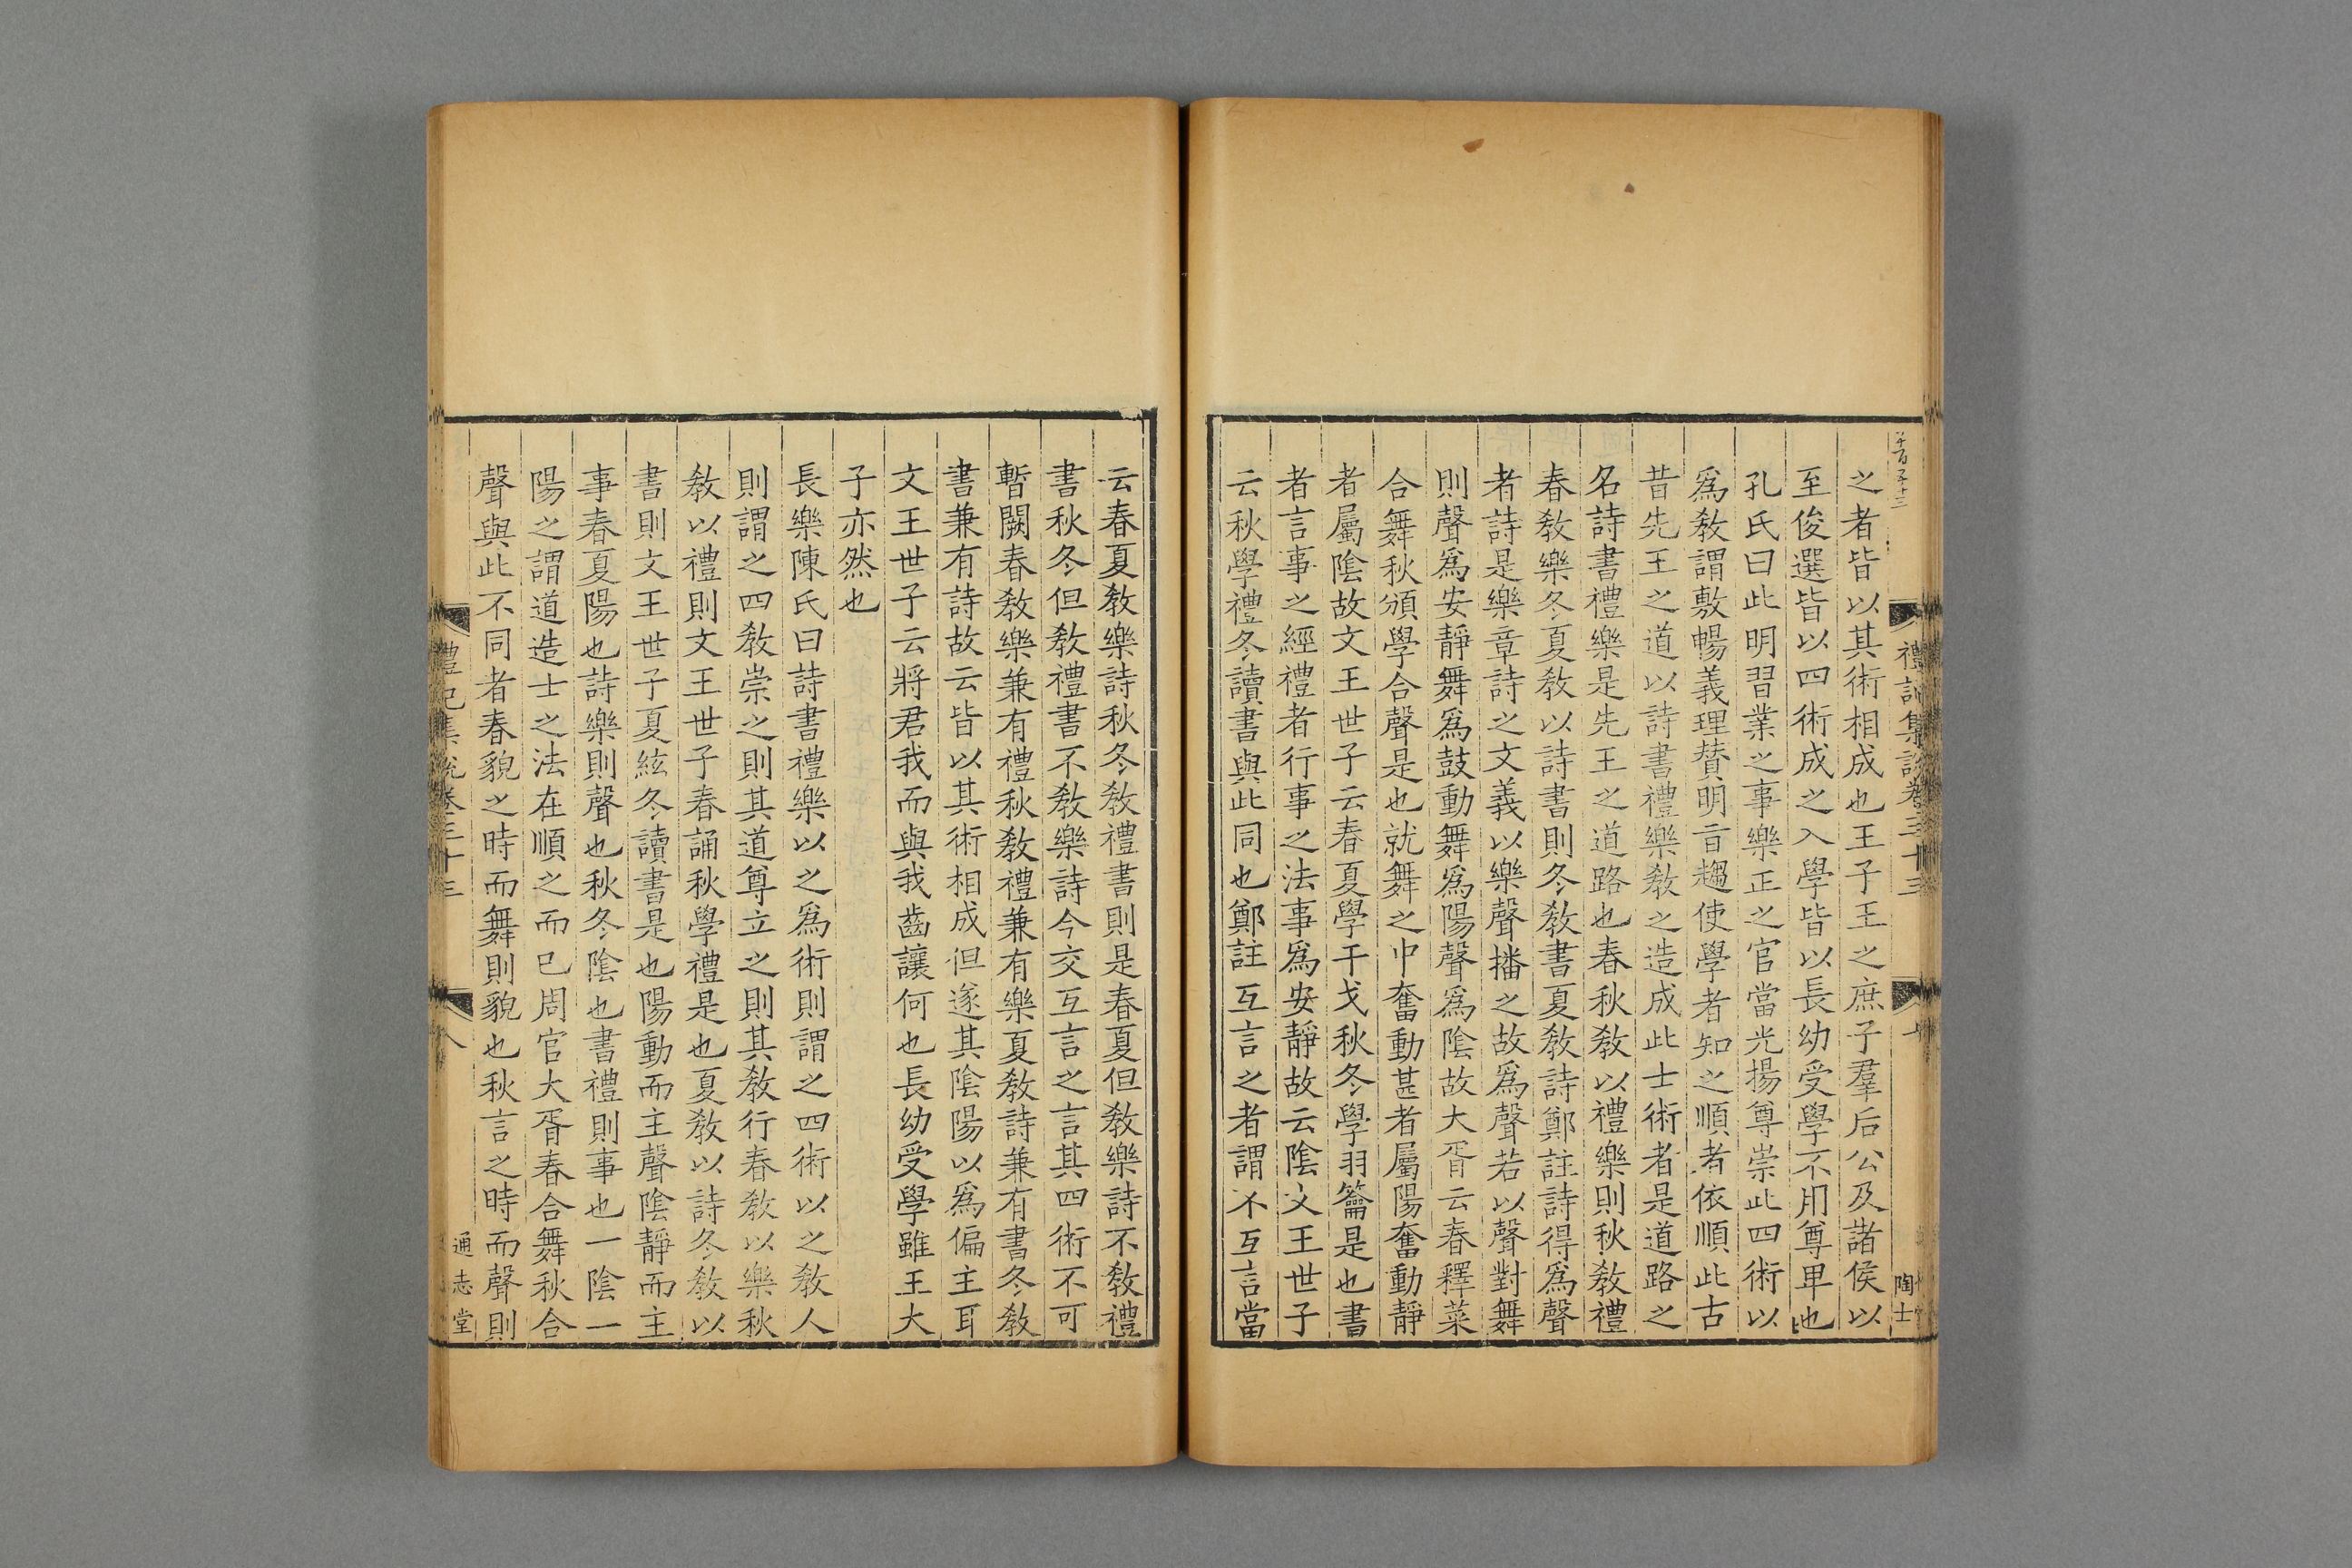 禮記集說卷三十三
七
陶士
之者皆以其術相成也王子王之庶子羣后公及諸侯以
至俊選皆以四術成之入學皆以長幼受學不用尊卑也
孔氏曰此明習業之事樂正之官當光揚尊崇此四術以
爲敎謂敷暢義理贊明旨趨使學者知之順者依順此古
昔先王之道以詩書禮樂敎之造成此士術者是道路之
名詩書禮樂是先王之道路也春秋敎以禮樂則秋敎禮
春敎樂冬夏敎以詩書則冬敎書夏敎詩鄭註詩得爲聲
者詩是樂章詩之文義以樂聲播之故爲聲若以聲對舞
則聲爲安靜舞爲鼓動舞爲陽聲爲陰故大胥云春釋菜
合舞秋頒學合聲是也就舞之中奮動甚者屬陽奮動靜
者屬陰故文王世子云春夏學干戈秋冬學羽籥是也書
者言事之經禮者行事之法事爲安靜故云陰文王世子
云秋學禮冬讀書與此同也鄭註互言之者謂不互言當
云春夏敎樂詩秋冬敎禮書則是春夏但敎樂詩不敎禮
書秋冬但敎禮書不敎樂詩今交互言之言其四術不可
暫闕春敎樂兼有禮秋敎禮兼有樂夏敎詩兼有書冬敎
書兼有詩故云皆以其術相成但遂其陰陽以爲偏主耳
文王世子云將君我而與我齒讓何也長幼受學雖王大
子亦然也
長樂陳氏曰詩書禮樂以之爲術則謂之四術以之敎人
則謂之四敎崇之則其道尊立之則其敎行春敎以樂秋
敎以禮則文王世子春誦秋學禮是也夏敎以詩冬敎以
書則文王世子夏絃冬讀書是也陽動而主聲陰靜而主
事春夏陽也詩樂則聲也秋冬陰也書禮則事也一陰一
陽之謂道造士之法在順之而已周官大胥春合舞秋合
聲與此不同者春貌之時而舞則貌也秋言之時而聲則
禮記集說卷三十三
八
通志堂